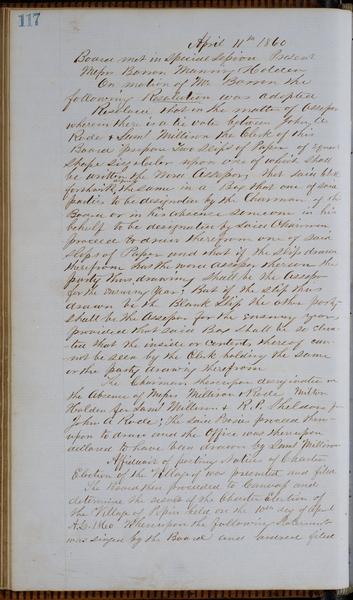 117
April 11th 1860
Board met in Special Session Present
Messrs Barron Manning Holden
On motion of Mr Barron the
following Resolution was adopted
Resolved that in the matter of Assessor
wherein there is a tie vote between John A
Rode & Saml Milliron the Clerk of this
Board prepare Two Slips of Paper of equal
Shape Size & Color upon one of which shall
be written the Word Assessor, that said Clerk
forthwith the same in a Box that one of said
parties to be designated by the Chairman of the
Board or in his absence someone in his
behalf to be designated by said Chairman
proceed to draw therefrom one of said
Slips of Paper and that if the slip drawn
therefrom has the word Assessor thereon the
party thus drawing shall be the Assessor
for the ensuing year; But if the slip thus
drawn be the Blank Slip the other party
shall be the Assessor for the ensuing year,
provided that said Box shall be so
that the inside or contents thereof can
not be seen by the Clerk holding the same
or the party drawing therefrom
The Chairman thereupon designated in
the absence of Messrs Milliron & Rode Milton
Holden for Saml Milliron & R. P. Sheldon for
John A Rode; The said Boxes proceed there
upon to draw and the Office was thereupon
declared to have been drawn by Saml Milliron
Affidavit of posting Notice of Charter
Election of the Village was presented and filed
The Board then proceeded to Canvass and
determine the result of the Charter Election of
the Village of Pepin held on the 10th day of April
A.D. 1860 Whereupon the following Statement
was signed by the Board and ordered filed